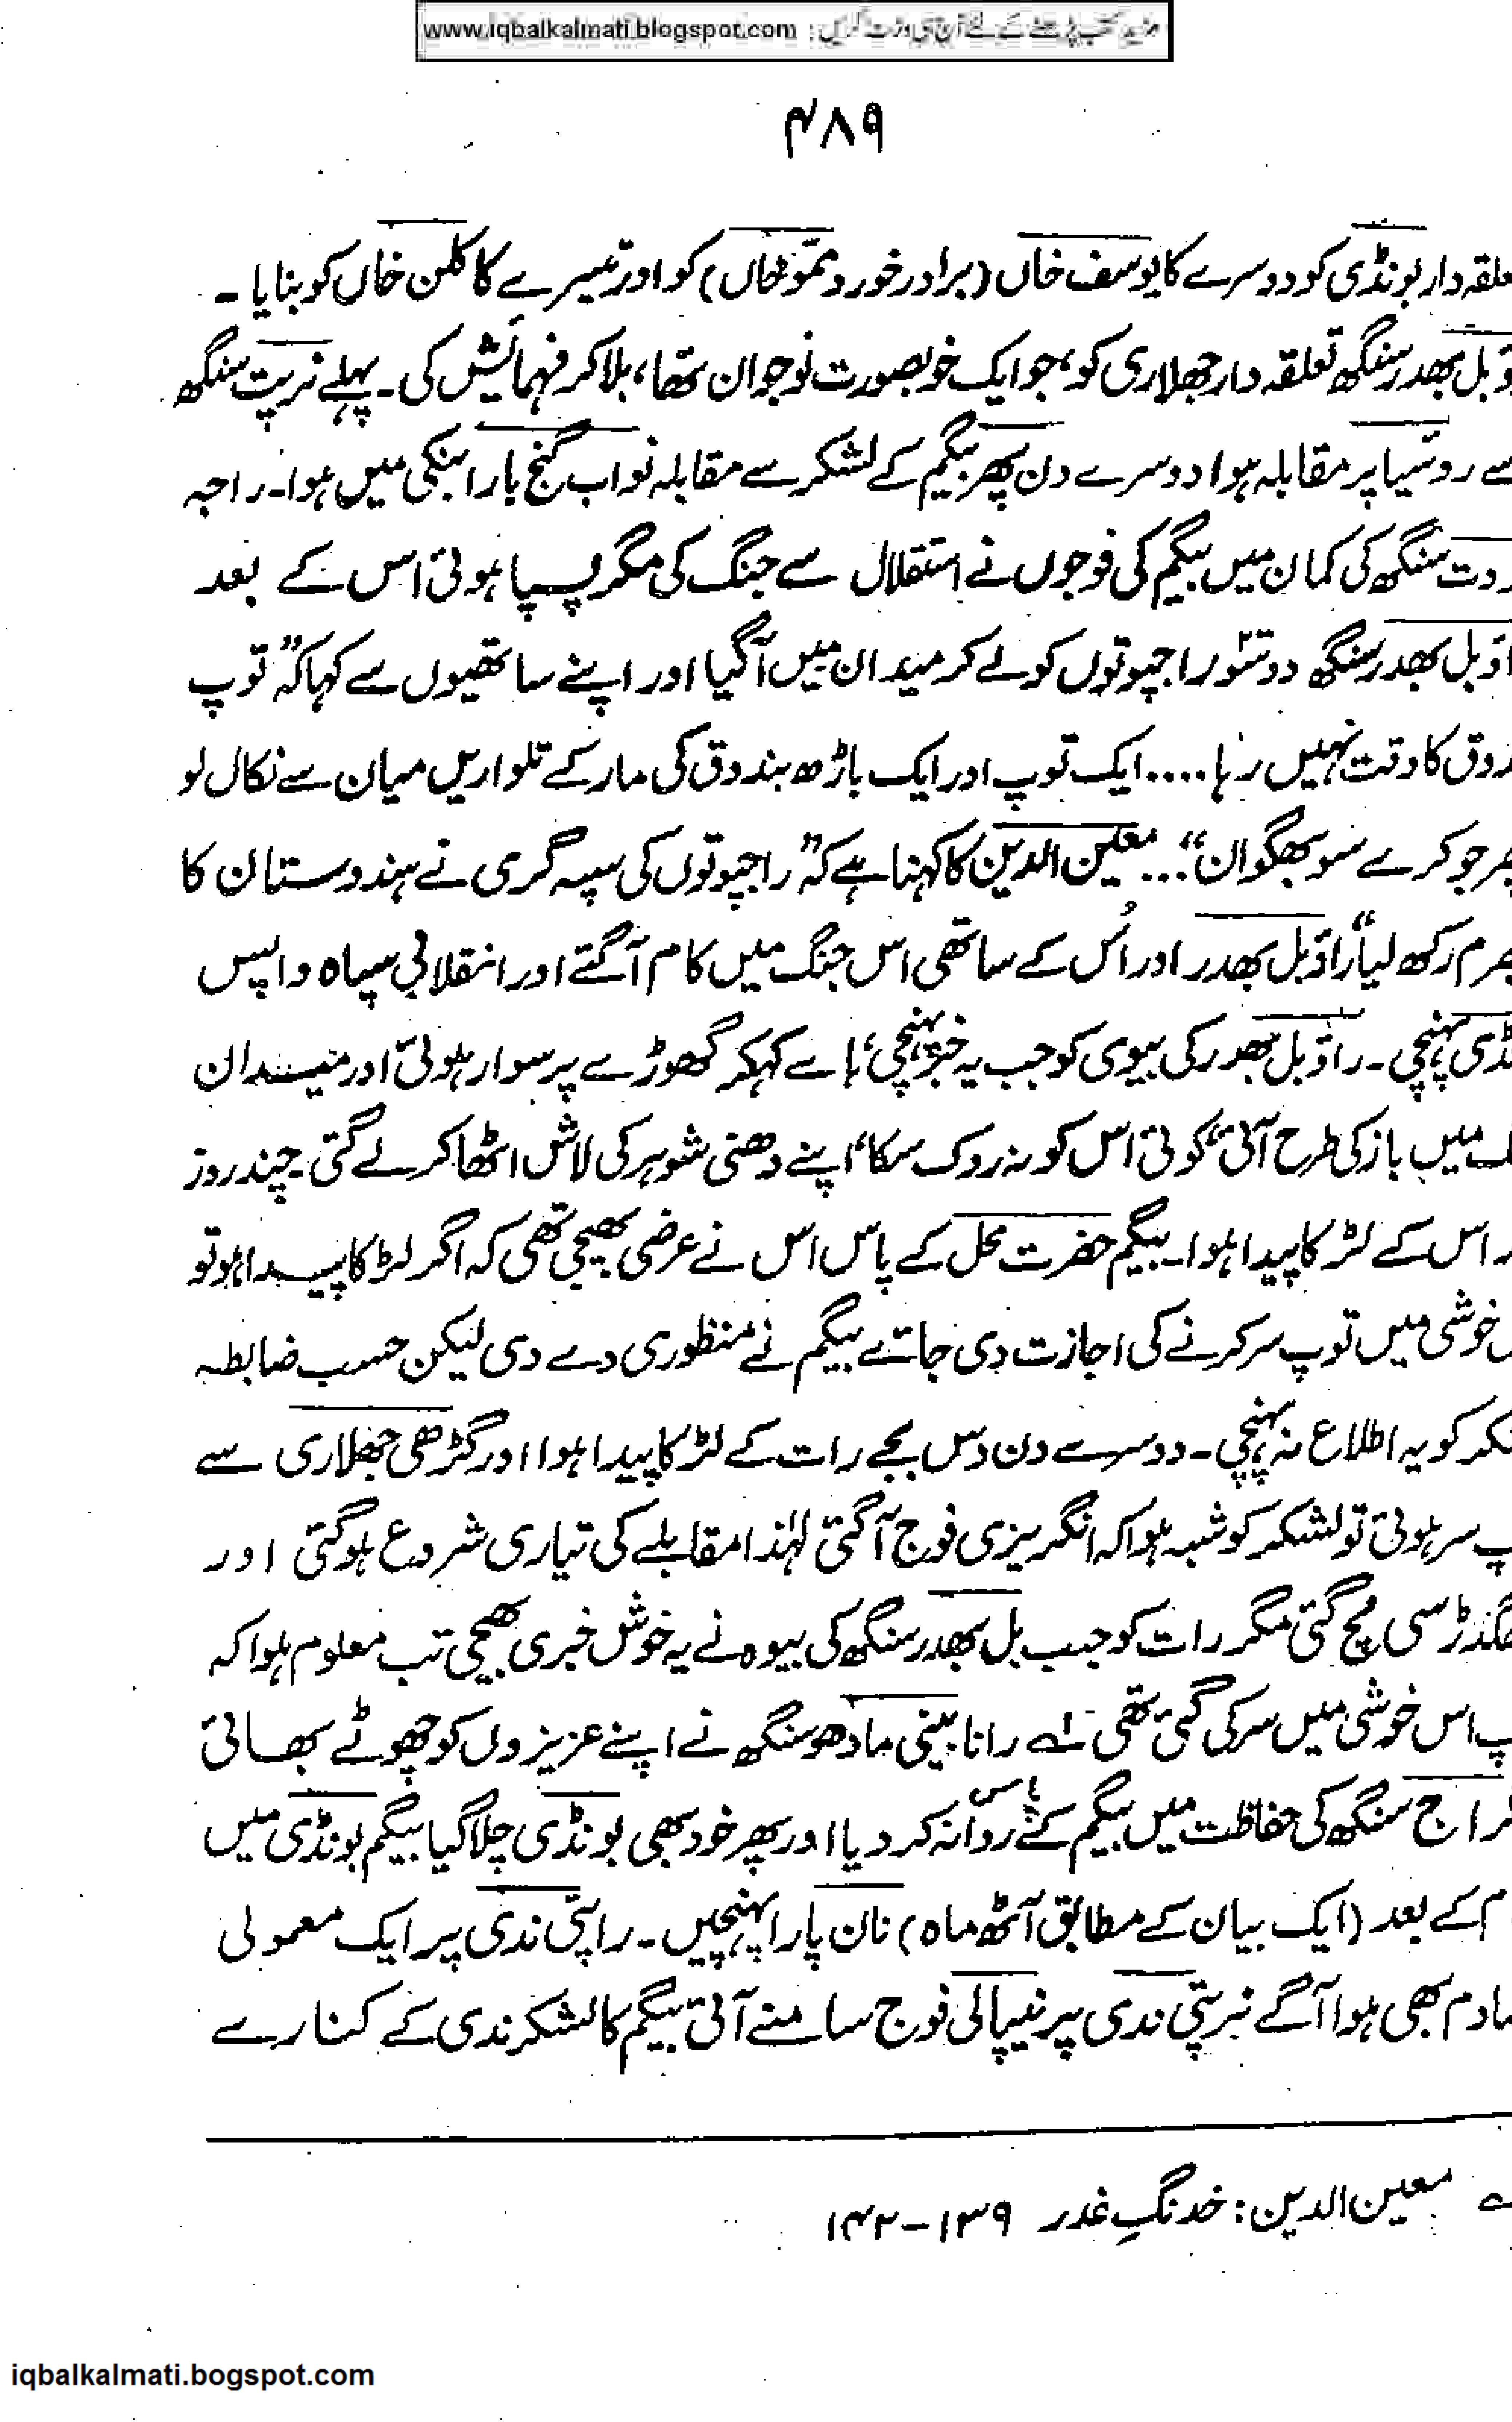 www.iqbalkalmati.blogspot.com : مزید کتب پڑھنے کے لئے آج ہی وزٹ کریں
۴۸۹
علقہ دار بونڈی کو دوسرے کا یوسف خاں (برادر خورد ممّو خاں) کو اور تیسرے کا کلن خاں کو بنایا ۔
ؤ بل بھدر سنگھ تعلقہ دار چھلاری کو، جو ایک خوبصورت نوجوان تھا، بلا کر فہمائش کی ۔ پہلے نرپت سنگھ
سے روئیا پر مقابلہ ہوا دوسرے دن پھر بیگم کے لشکر سے مقابلہ نواب گنج بارابنکی میں ہوا۔ راجہ
ردت سنگھ کی کمان میں بیگم کی فوجوں نے استقلال سے جنگ کی مگر پسپا ہوئی اس کے بعد
اؤ بل بھدر سنگھ دو سَو راجپوتوں کو لے کر میدان میں آگیا اور اپنے ساتھیوں سے کہا کہ ”توپ
دوق کا وقت نہیں رہا.... ایک توپ اور ایک باڑھ بندوق کی مار کے تلواریں میان سے نکال لو
پھر جو کرے سو بھگوان“... معین الدین کا کہنا ہے کہ ”راجپوتوں کی سپہ گری نے ہندوستان کا
بھرم رکھ لیا“ راؤ بل بھدر اور اُس کے ساتھی اس جنگ میں کام آگئے اور انقلابی سپاہ واپس
نڈی پہنچی ۔ راؤ بل بھدر کی بیوی کو جب یہ خبر پہنچی ’ہا سے کہکر گھوڑے پر سوار ہوئی اور میدان
میں باز کی طرح آئی‘ کوئی اس کو نہ روک سکا، اپنے دھنی شوہر کی لاش اٹھا کر لے گئی ۔ چند روز
اس کے لڑکا پیدا ہوا ۔ بیگم حضرت محل کے پاس اس نے عرضی بھیجی تھی کہ اگر لڑکا پیدا ہو تو
خوشی میں توپ سر کرنے کی اجازت دی جائے بیگم نے منظوری دے دی لیکن حسب ضابطہ
کر کو یہ اطلاع نہ پہنچی ۔ دوسرے دن دس بجے رات کے لڑکا پیدا ہوا اور گڑھی چھلاری سے
پ سر ہوئی تو لشکر کو شبہ ہوا کہ انگریزی فوج آگئی لہٰذا مقابلے کی تیاری شروع ہوگئی اور
گدڑ سی مچ گئی مگر رات کو جب بل بھدر سنگھ کی بیوہ نے یہ خوش خبری بھیجی تب معلوم ہوا کہ
پ اس خوشی میں سر کی گئی تھی ۱؎ رانا بینی مادھو سنگھ نے اپنے عزیزوں کو چھوٹے بھائی
راج سنگھ کی حفاظت میں بیگم کے پاس روانہ کر دیا اور پھر خود بھی بونڈی چلا گیا بیگم بونڈی میں
م کے بعد (ایک بیان کے مطابق آٹھ ماہ) نان پارا پہنچیں ۔ راپتی ندی پر ایک معمولی
صادم بھی ہوا آگے نرپتی ندی پر نیپالی فوج سامنے آئی بیگم کا لشکر ندی کے کنارے
معین الدین : خدنگِ غدر ۱۳۹-۱۴۲
iqbalkalmati.bogspot.com